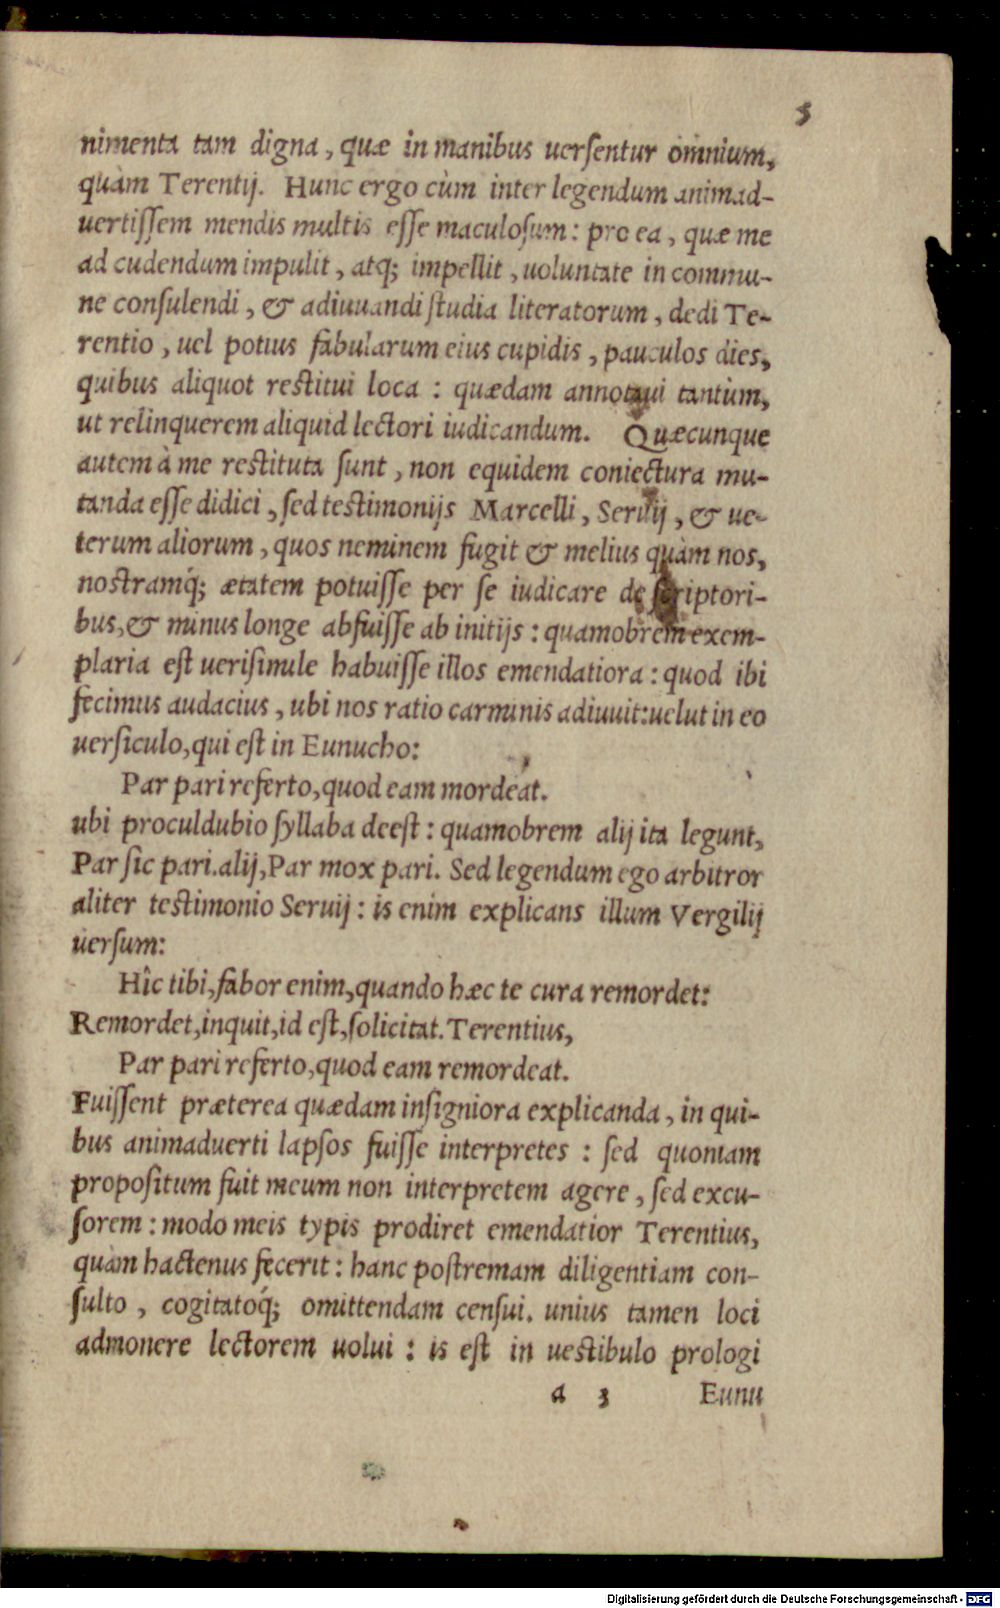 3
nimenta tam digna, quæ in manibus uersentur omnium,
quàm Terentij. Hunc ergo cùm inter legendum animad-
uertissem mendis multis esse maculosum: pro ea, quæ me
ad cudendum impulit, atq; impellit, uoluntate in commu-
ne consulendi, & adiuuandi studia literatorum, dedi Te-
rentio, uel potius fabularum eius cupidis, pauculos dies,
quibus aliquot restitui loca: quædam annotaui tantùm,
ut relinquerem aliquid lectori iudicandum. Quæcunque
autem à me restituta sunt, non equidem coniectura mu-
tanda esse didici, sed testimonijs Marcelli, Seruij, & ue-
terum aliorum, quos neminem fugit & melius quàm nos,
nostramq́; ætatem potuisse per se iudicare de scriptori-
bus, & minus longe abfuisse ab initijs: quamobrem exem-
plaria est uerisimile habuisse illos emendatiora: quod ibi
fecimus audacius, ubi nos ratio carminis adiuuit: uelut in eo
uersiculo, qui est in Eunucho:
Par pari referto, quod eam mordeat.
ubi proculdubio syllaba deest: quamobrem alij ita legunt,
Par sic pari. alij, Par mox pari. Sed legendum ego arbitror
aliter testimonio Seruij: is enim explicans illum Vergilij
uersum:
Hîc tibi, fabor enim, quando hæc te cura remordet:
Remordet, inquit, id est, solicitat. Terentius,
Par pari referto, quod eam remordeat.
Fuissent præterea quædam insigniora explicanda, in qui-
bus animaduerti lapsos fuisse interpretes: sed quoniam
propositum fuit meum non interpretem agere, sed excu-
sorem: modo meis typis prodiret emendatior Terentius,
quàm hactenus fecerit: hanc postremam diligentiam con-
sulto, cogitatoq́; omittendam censui. unius tamen loci
admonere lectorem uolui: is est in uestibulo prologi
a 3 Eunu
Digitalisierung gefördert durch die Deutsche Forschungsgemeinschaft - DFG